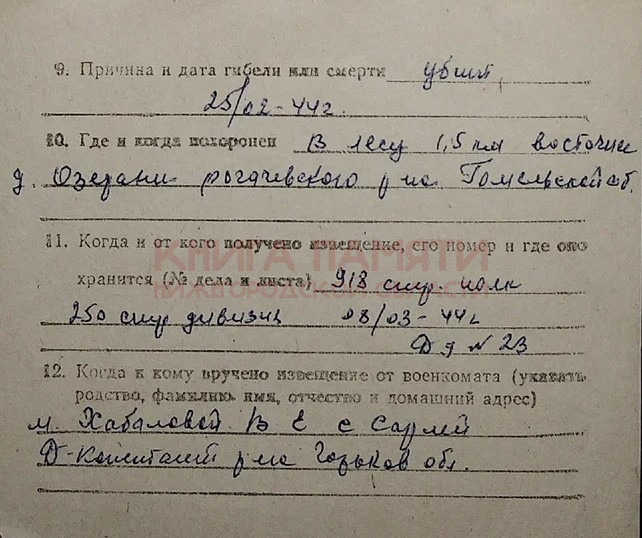 9. Причина и дата гибели или смерти убит
25/02-44г.
10. Где и когда похоронен В лесу 1,5 км восточнее
д. Озерани рогачевского р на Гомельской об.
11. Когда и от кого получено извещение, его номер и где оно
хранится (№ дела и листа) 918 стр. полк
250 стр дивизии 08/03-44г
Д д N 23
12. Когда и кому вручено извещение от военкомата (указать
родство, фамилию, имя, отчество и домашний адрес)
м. Хабаловой В Е с Сарлей
Д-Констант р на Горьков обл.
КНИГА ПАМЯТИ
НИЖЕГОРОДСКОЙ ОБЛАСТИ